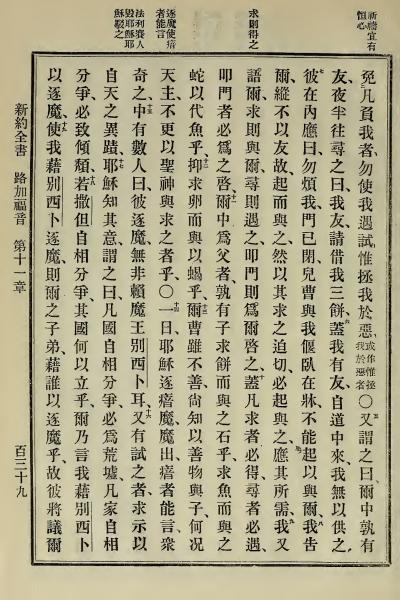 祈禱宜有
恒心
求則得之
逐魔使瘖
者能言
法利賽人
毀耶穌耶
穌駁之
免凡負我者、勿使我遇試、惟拯我於惡、或作惟拯我於惡者〇五又謂之曰、爾中孰有
友、夜半往尋之曰、我友、請借我三餅、六蓋我有友、自道中來、我無以供之、
七彼在內應曰、勿煩我、門已閉、兒曹與我偃臥在牀、不能起以與爾、八我告
爾、縱不以友故、起而與之、然以其求之迫切、必起與之、應其所需、九我又
語爾、求則與爾、尋則遇之、叩門則爲爾啓之、十蓋凡求者必得、尋者必遇、
叩門者必爲之啓、十一爾中爲父者、孰有子求餅而與之石乎、求魚而與之
蛇以代魚乎、十二抑求卵而與以蝎乎、十三爾曹雖不善、尙知以善物與子、何况
天主不更以聖神與求之者乎、〇十四一日、耶穌逐瘖魔、魔出、瘖者能言、衆
奇之、十五中有數人曰、彼逐魔、無非賴魔王別西卜耳、十六又有試之者、求示以
自天之異蹟、十七耶穌知其意、謂之曰、凡國自相分爭、必爲荒墟、凡家自相
分爭、必致傾頹、十八若撒但自相分爭、其國何以立乎、爾乃言我藉別西卜
以逐魔、十九使我藉別西卜逐魔、則爾之子弟、藉誰以逐魔乎、故彼將議爾
新約全書 路加福音 第十一章 百三十九